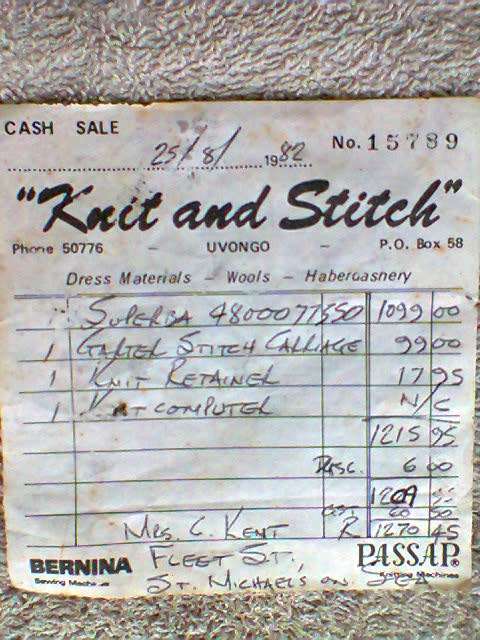 CASH SALE
No. 15789
25/8/ 1982
"Knit and Stitch"
Phone 50776 - UVONGO - P.O. Box 58
Dress Materials - Wools - Haberdashery
1 SUPERBA 4800077550 1099 00
1 GARTER STITCH CARRIAGE 99 00
1 KNIT RETAINER 17 95
1 COMPUTER N/C
1215 95
DISC. 6 00
1209
GST 60 50
MRS. C. KENT R 1270 45
BERNINA FLEET ST., PASSAP®
Sewing Machines ST. MICHAELS ON SEA Knitting Machines